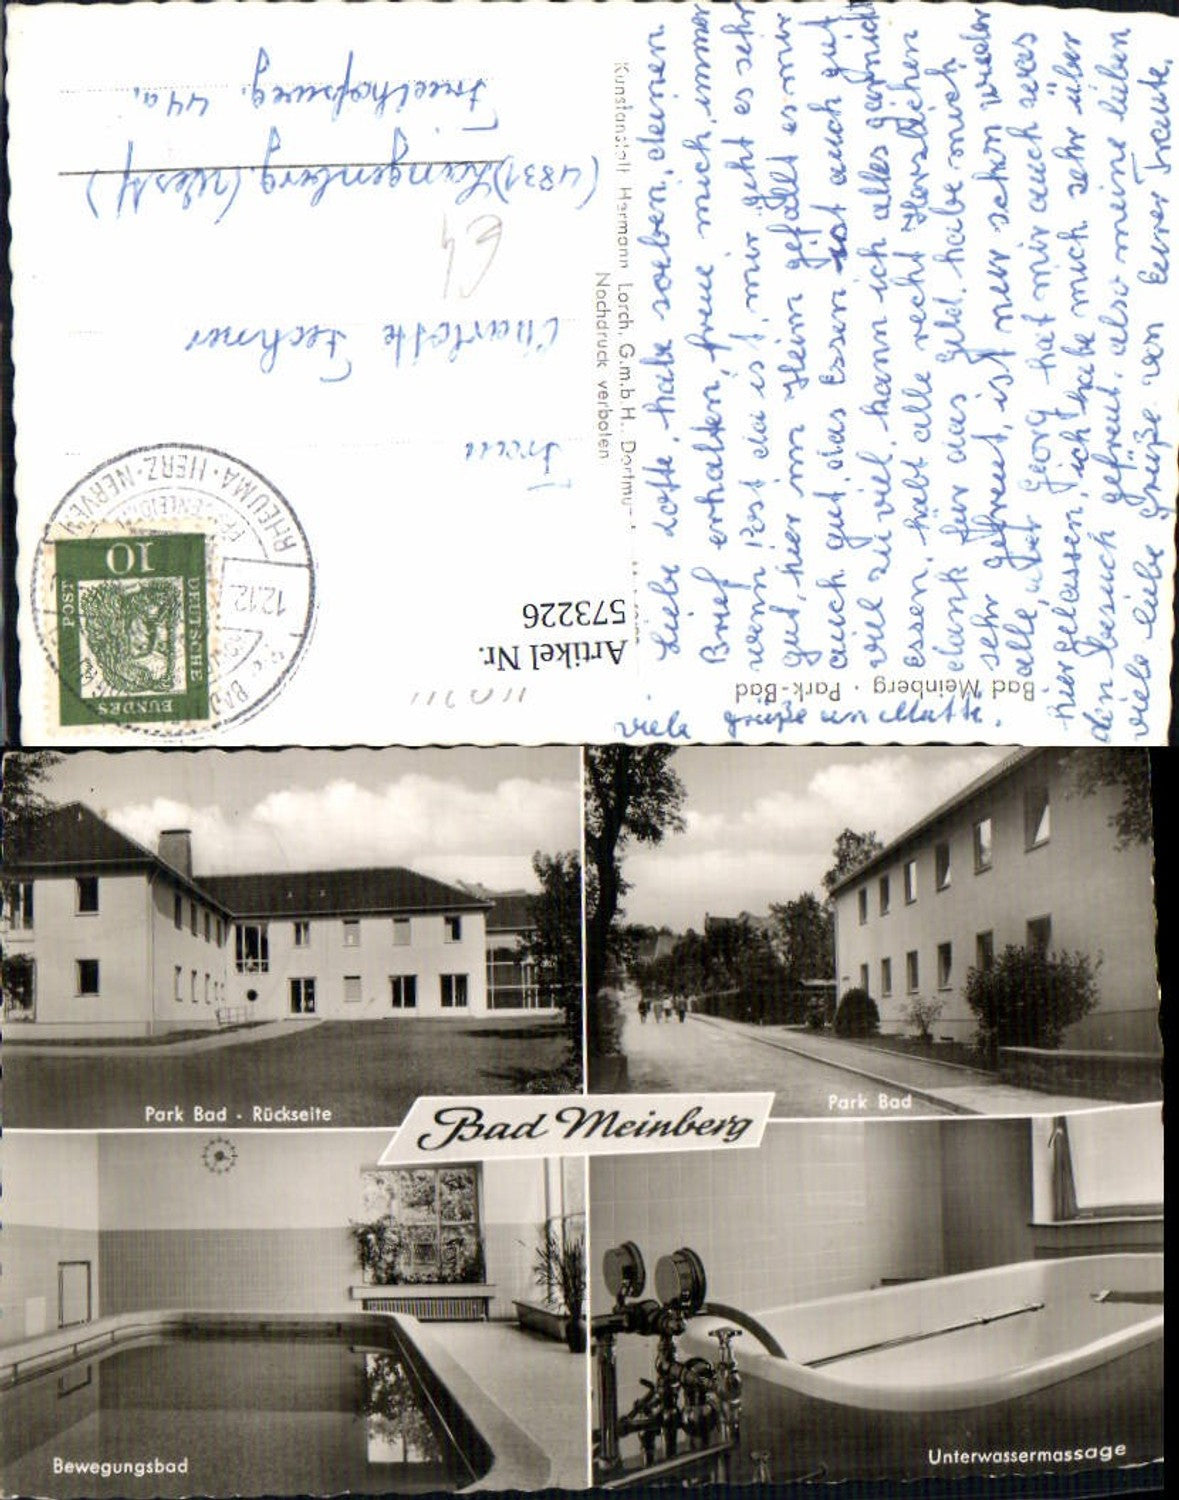 Liebe Lotte, habe soeben deinen
Brief erhalten, freue mich immer
wenn Post da ist, mir geht es sehr
gut, hier im Heim gefällt es mir
auch gut, das Essen ist auch gut
viel zu viel, kann ich alles garnicht
essen, habt alle recht Herzlichen
dank für das Geld, habe mich
sehr gefreut, ist nur schon wieder
alle, aber Georg hat mir auch was
hier gelassen, ich habe mich sehr über
den besuch gefreut, also meine lieben
viele liebe Grüße von Eurer Traute.
viele Grüße an Mutti.
Bad Meinberg · Park-Bad
Kunstanstalt Hermann Lorch, G.m.b.H., Dortmu
Nachdruck verboten
Artikel Nr.
573226
DEUTSCHE
BUNDES
POST
10
RHEUMA · HERZ · NERVEN
12.12.
BAD
Frau
Charlotte Fechner
(4831) Langenberg (Westf)
Friedhofsweg. 44a.
€4
Park Bad · Rückseite
Park Bad
Bad Meinberg
Bewegungsbad
Unterwassermassage